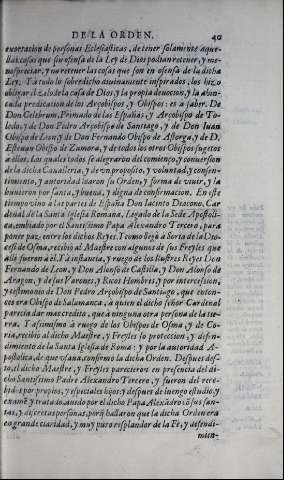 DE LA ORDEN. 40
exortacion de personas Eclesiasticas, de tener solamente aque-
llas cosas que sin ofensa de la Ley de Dios podian retener, y me-
nospreciar, y no retener las cosas que son en ofensa de la dicha
Ley. Y à todo lo sobredicho divinamente inspirados, los hizo
obligar el zelo de la casa de Dios, y la propia devocion, y la ahin-
cada predicacion de los Arçobispos, y Obispos: es a saber. De
Don Celebrum, Primado de las Españas, y Arçobispo de To-
ledo, y de Don Pedro Arçobispo de Santiago, y de Don Iuan
Obispo de Leon, y de Don Fernando Obispo de Astorga, y de D.
Estevan Obispo de Zamora, y de todos los otros Obispos sugetos
a ellos. Los quales todos se alegraron del comienço, y conversion
de la dicha Cavalleria, y de un proposito, y voluntad, y consen-
timiento, y autoridad loaron su Orden, y forma de vivir, y la
huvieron por santa, y buena, y digna de confirmacion. En este
tiempo vino à las partes de España Don Iacinto Diacono, Car
denal de la Santa Iglesia Romana, Legado de la Sede Apostoli-
ca, embiado por el Santissimo Papa Alexandro Tercero, para
poner paz entre los dichos Reyes. Y como llegò à Soria de la Dio-
cesi de Osma, recibiò al Maestre con algunos de sus Freyles que
allà fueron à él. Y à instancia, y ruego de los Illustres Reyes Don
Fernando de Leon, y Don Alonso de Castilla, y Don Alonso de
Aragon, y de sus Varones, y Ricos Hombres, y por intercession,
y testimonio de Don Pedro Arçobispo de Santiago, que enton-
ces era Obispo de Salamanca, à quien el dicho señor Cardenal
parecia dar mas credito, que à ninguna otra persona de la tie-
rra. Y assimismo à ruego de los Obispos de Osma, y de Co-
ria, recibiò al dicho Maestre, y Freyles so proteccion, y defen-
dimiento de la Santa Iglesia de Roma: y por la autoridad A-
postolica, de que usava, confirmò la dicha Orden. Despues des-
to, el dicho Maestre, y Freyles parecieron en presencia del di-
cho Santissimo Padre Alexandro Tercero, y fueron del rece-
bidos por propios, y especiales hijos: y despues de luengo estudio, y
examē, y tratado, avido por el dicho Papa Alexādro cō sus san-
tas, y discretas personas, porq̃ hallaron que la dicha Orden era
en grande claridad, y muy puro resplandor de la Fè, y defendi-
mien-